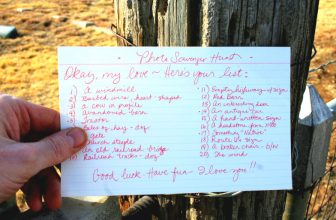 - Photo Scavenger Hunt -
Okay, my love - Here's your list:
1) a windmill
2) Barbed wire, heart-shaped
3) a cow in profile
4) abandoned barn
5)
bales of hay - dog
gate
church steeple
an old railroad bridge
Railroad tracks - dog
11) Empty highway w/ sign
12) Red Barn
13) An interesting door
14) An antique car
15) a hand-written sign
16) a headstone
17) Something "Native"
18) Route 66 sign
19) a
20) The wind
Good luck - Have fun - I love you!!